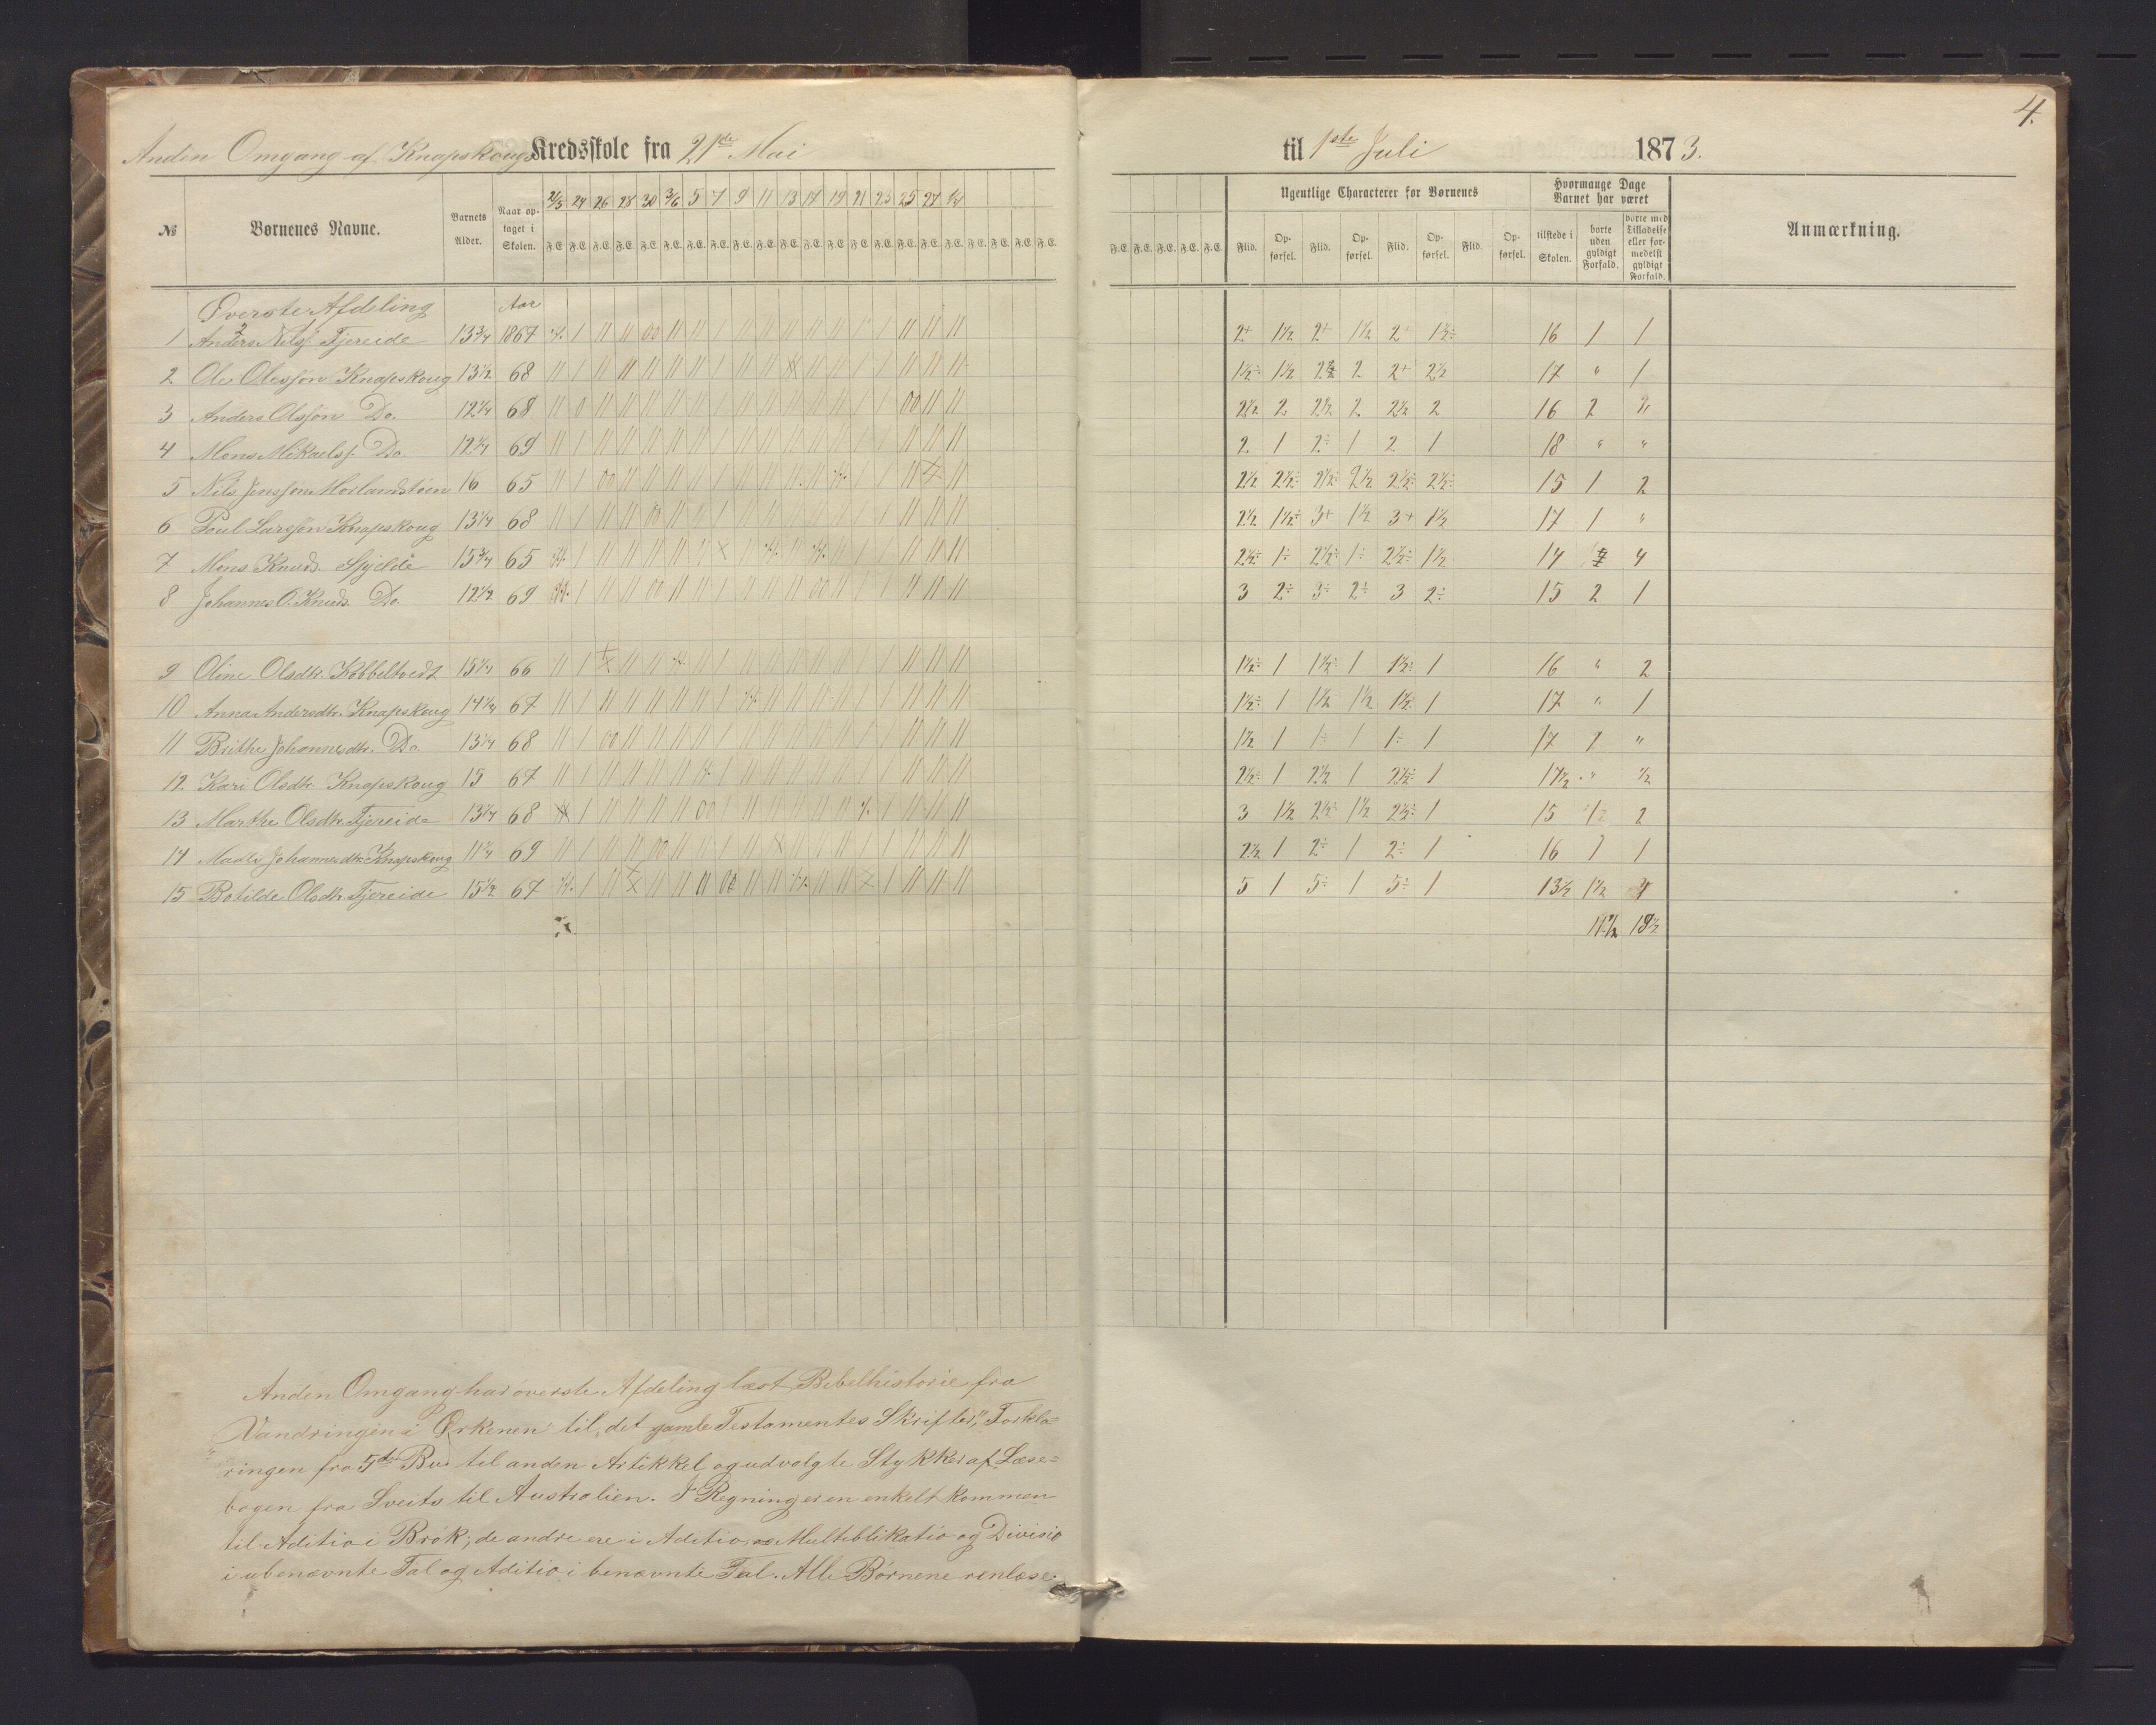 4.
Anden Omgang af Knapskougs Kredsskole fra 21de Mai til 1ste Juli 1873.
№ Børnenes Navne. Barnets Alder. Naar optaget i Skolen. 21/5 24 26 28 30 3/6 5 7 9 11 13 17 19 21 23 25 27 1/7
F.E. F.E. F.E. F.E. F.E. F.E. F.E. F.E. F.E. F.E. F.E. F.E. F.E. F.E. F.E. F.E. F.E. F.E. F.E. F.E. F.E. F.E.
F.E. F.E. F.E. F.E. F.E. Ugentlige Characterer for Børnenes Hvormange Dage Barnet har været Anmærkning.
Flid. Opførsel. Flid. Opførsel. Flid. Opførsel. Flid. Opførsel. tilstede i Skolen. borte uden gyldigt Forfald. borte med Tilladelse eller formedelst gyldigt Forfald.
Øverste Afdeling Aar
1 Anders Nilsj. Fjereide 13 3/4 1867 2+ 1 1/2 2+ 1 1/2 2+ 1 1/2÷ 16 1 1
2 Ole Olessøn Knapskoug 13 1/2 68 1 1/2÷ 1 1/2 2 2+ 2 1/2 17 " 1
3 Anders Olsjøn Do. 12 1/4 68 2 1/2 2 2 1/2 2 2 1/2 2 16 2 "
4 Mons Mikaelsj. Do. 12 1/4 69 2 1 2÷ 1 2 1 18 " "
5 Nils Jensjøn Morlandstøen 16 65 2 1/2 2 1/2÷ 2 1/2÷ 2 1/2 2 1/2÷ 2 1/2÷ 15 1 2
6 Poul Larsjøn Knapskoug 13 1/4 68 2 1/2 1 1/2÷ 3+ 1 1/2 3+ 1 1/2 17 1 "
7 Mons Knuds. Spjelde 15 3/4 65 2 1/2÷ 1÷ 2 1/2÷ 1÷ 2 1/2÷ 1 1/2 14 4
8 Johannes O. Knuds. Do. 12 1/2 69 3 2÷ 3÷ 2÷ 3 2÷ 15 2 1
9 Oline Olsdtr. Kobbeltvedt 15 1/4 66 1 1/2÷ 1 1 1/2÷ 1 1 1/2÷ 1 16 " 2
10 Anna Andersdtr. Knapskoug 14 1/4 67 1 1/2÷ 1 1 1/2 1 1/2 1 1/2÷ 1 17 " 1
11 Brithe Johannesdtr. Do. 13 1/4 68 1 1/2 1 1÷ 1 1÷ 1 17 1 "
12. Kari Olsdtr. Knapskoug 15 67 2 1/2÷ 1 2 1/2 1 2 1/2÷ 1 17 1/2 " 1/2
13 Marthe Olsdtr. Fjereide 13 1/4 68 3 1 1/2 2 1/2÷ 1 1/2 2 1/2÷ 1 15 2
14 Madli Johannesdtr. Knapskoug 11 3/4 69 2 1/2 1 2÷ 1 2÷ 1 16 1 1
15 Botilde Olsdtr. Fjereide 15 1/2 67 5 1 5÷ 1 5÷ 1 13 1/2 1 1/2
11 1/2 19 1/2
Anden Omgang har øverste Afdeling læst Bibelhistorie fra
"Vandringen i Ørkenen" til "det gamle Testamentes Skrifter", Forkla=
ringen fra 5te Bud til anden Artikkel og udvalgte Stykker af Læse=
bogen fra Sveits til Australien. I Regning er en enkelt kommen
til Aditio i Brøk; de andre ere i Aditio, Multiblikatio og Divisio
i ubenævnte Tal og Aditio i benævnte Tal. Alle Børnene renlæse.